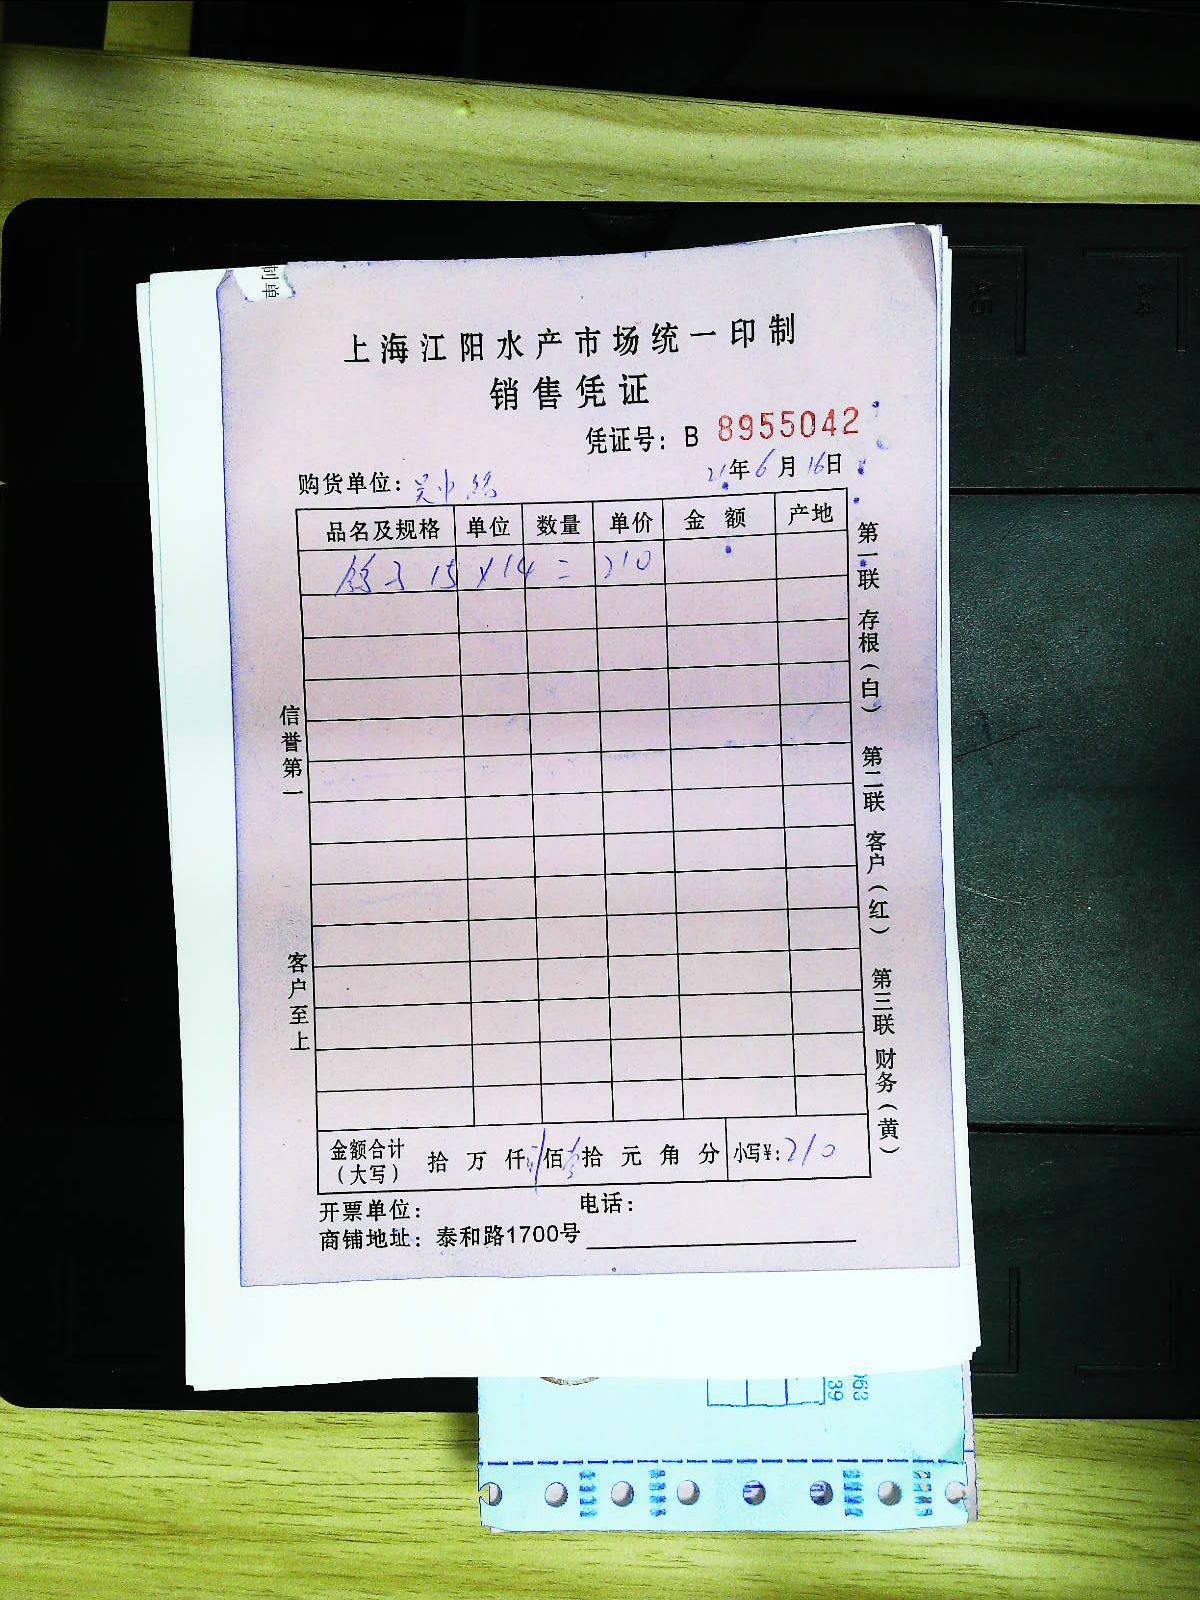 制单
上海江阳水产市场统一印制
销售凭证
凭证号：B 8955042
21年6月16日
购货单位：吴中路
品名及规格 单位 数量 单价 金额 产地
15 X14 = 210
信誉第一 客户至上
第一联 存根（白） 第二联 客户（红） 第三联 财务（黄）
金额合计（大写） 拾 万 仟 佰 拾 元 角 分 小写¥：210
开票单位： 电话：
商铺地址：泰和路1700号
A5
A4
063
39